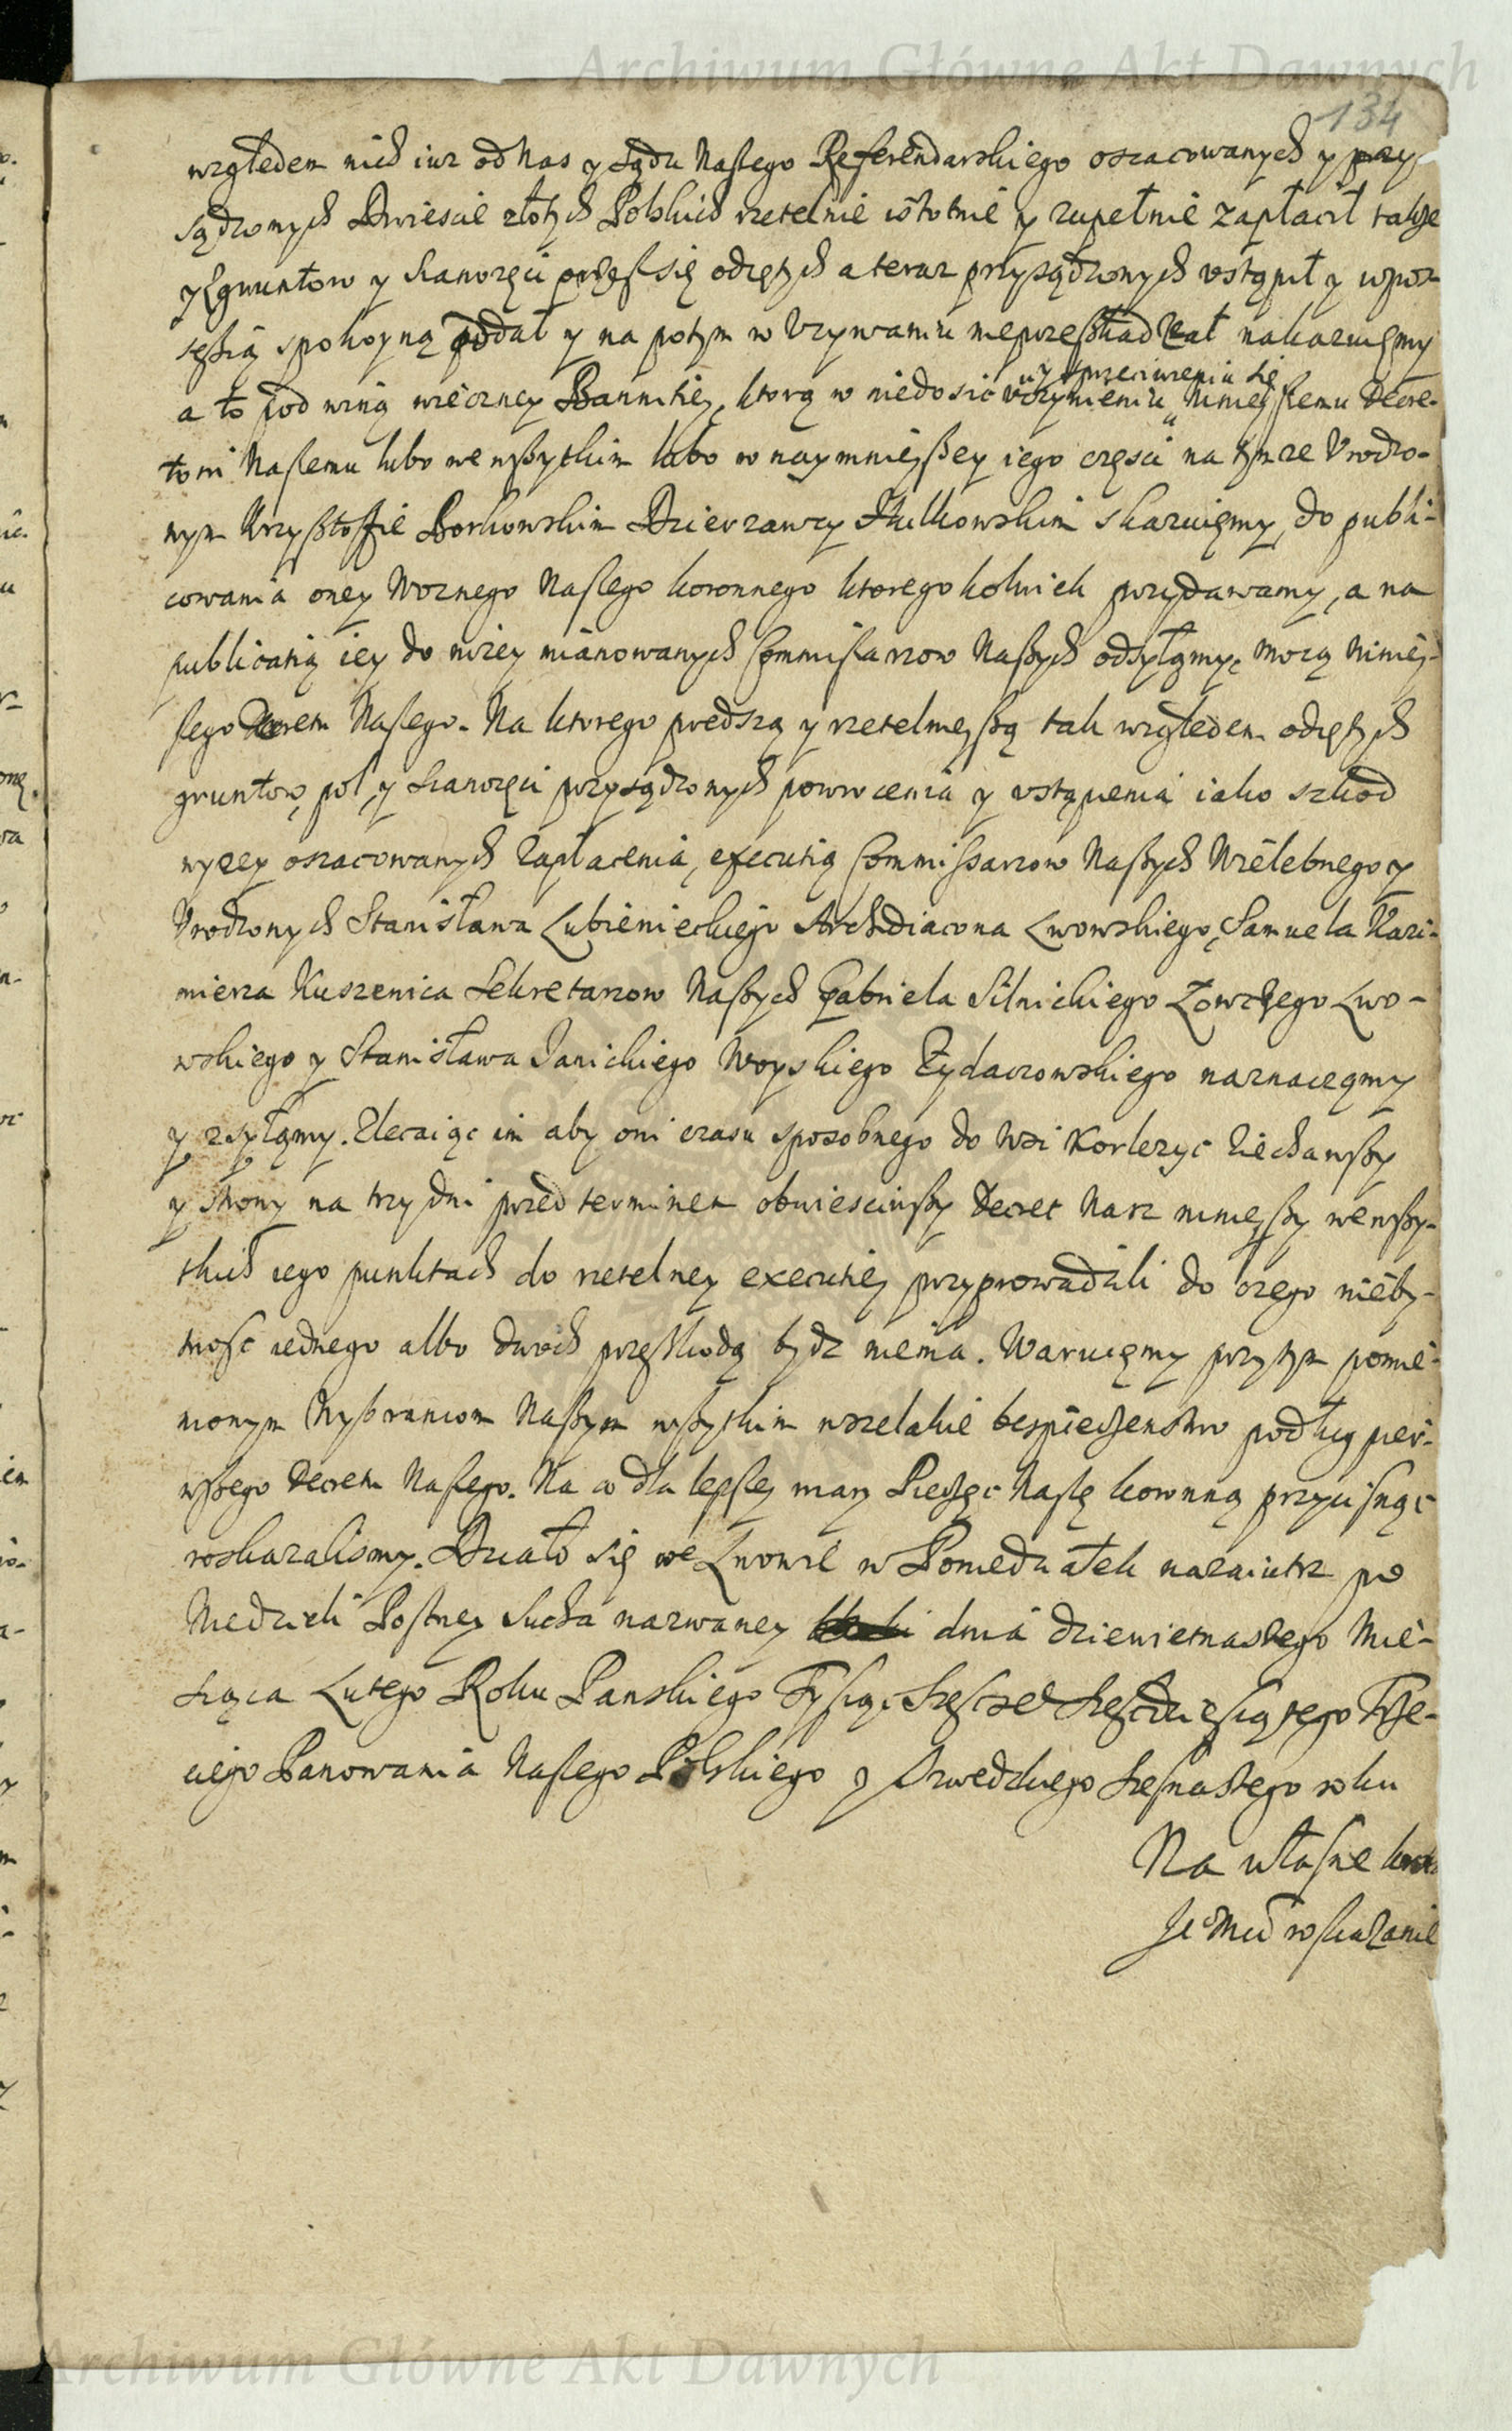 Archiwum Główne Akt Dawnych
134
względem nich iuz od Nas y Sądu Naszego Referendarskiego oszacowanych y przy-
sądzonych Dwiescie złotych Polskich rzetelnie istotnie y zupełnie zapłacił takze
y gruntow y sianozęci odiętych a teraz przysądzonych ustąpił y w pos-
sessią spokoyną podał y na potym w Uzywaniu nieprzeszkadzał nakazuięmy
y sprzeciwieniu się
a to pod winą wieczney Bannitiey, ktorą w niedosic uczynieniu Ninieyszemu Decre-
towi Naszemu lubo we wszytkim lubo w naymnieyszey iego części na tymze Urodzo-
nym Krzysztofie Borkowskim Dzierzawcy skazuięmy, do publi-
cowania oney Woznego Naszego koronnego ktoregokolwiek przydawamy, a na
publicatią iey do nizey mianowanych Commissarzow Naszych odsyłamy, mocą Niniey-
szego Decretu Naszego. Na ktorego prędszą y rzetelnieyszą tak względem odiętych
gruntow, pol, y sianozęci przysądzonych powrocenia y ustąpienia iako szkod
wyzey oszacowanych zapłacenia, executią Commissarzow Naszych Wielebnego y
Urodzonych Stanisława Lubienieckiego Archidiacona Lwowskiego, Samuela Kazi-
mierza Kuszewica Sekretarzow Naszych Gabriela Silnickiego Łowczego Lwo-
wskiego y Stanisława Janickiego Woyskiego Zydaczowskiego naznaczamy
y zsyłamy. Zlecaiąc im aby oni czasu sposobnego do Wsi ziechawszy
y strony na trzy dni przed terminem obwiesciwszy Decret Nasz ninieyszy we wszy-
tkich iego punktach do rzetelney executiey przyprowadzili do czego nieby-
tnosc iednego albo dwoch przeszkodą bydz niema. Waruięmy przytym pomie-
nionym Wybrancom Naszym wszytkim wszelakie bespieczenstwo podług pier-
wszego Decretu Naszego. Na co dla lepszey wiary Pieczęc Naszę koronną przycisnąc
roskazalismy. Działo się we Lwowie w Poniedziałek nazaiutrz po
Niedzieli Postney Sucha nazwaney dnia dziewietnastego Mie-
siąca Lutego Roku Panskiego Tysiąc Szescset Szescdziesiątego Trze-
ciego Panowania Naszego Polskiego y Szwedzkiego Szesnastego roku
Na własne
Je Mci roskazanie
Archiwum Główne Akt Dawnych